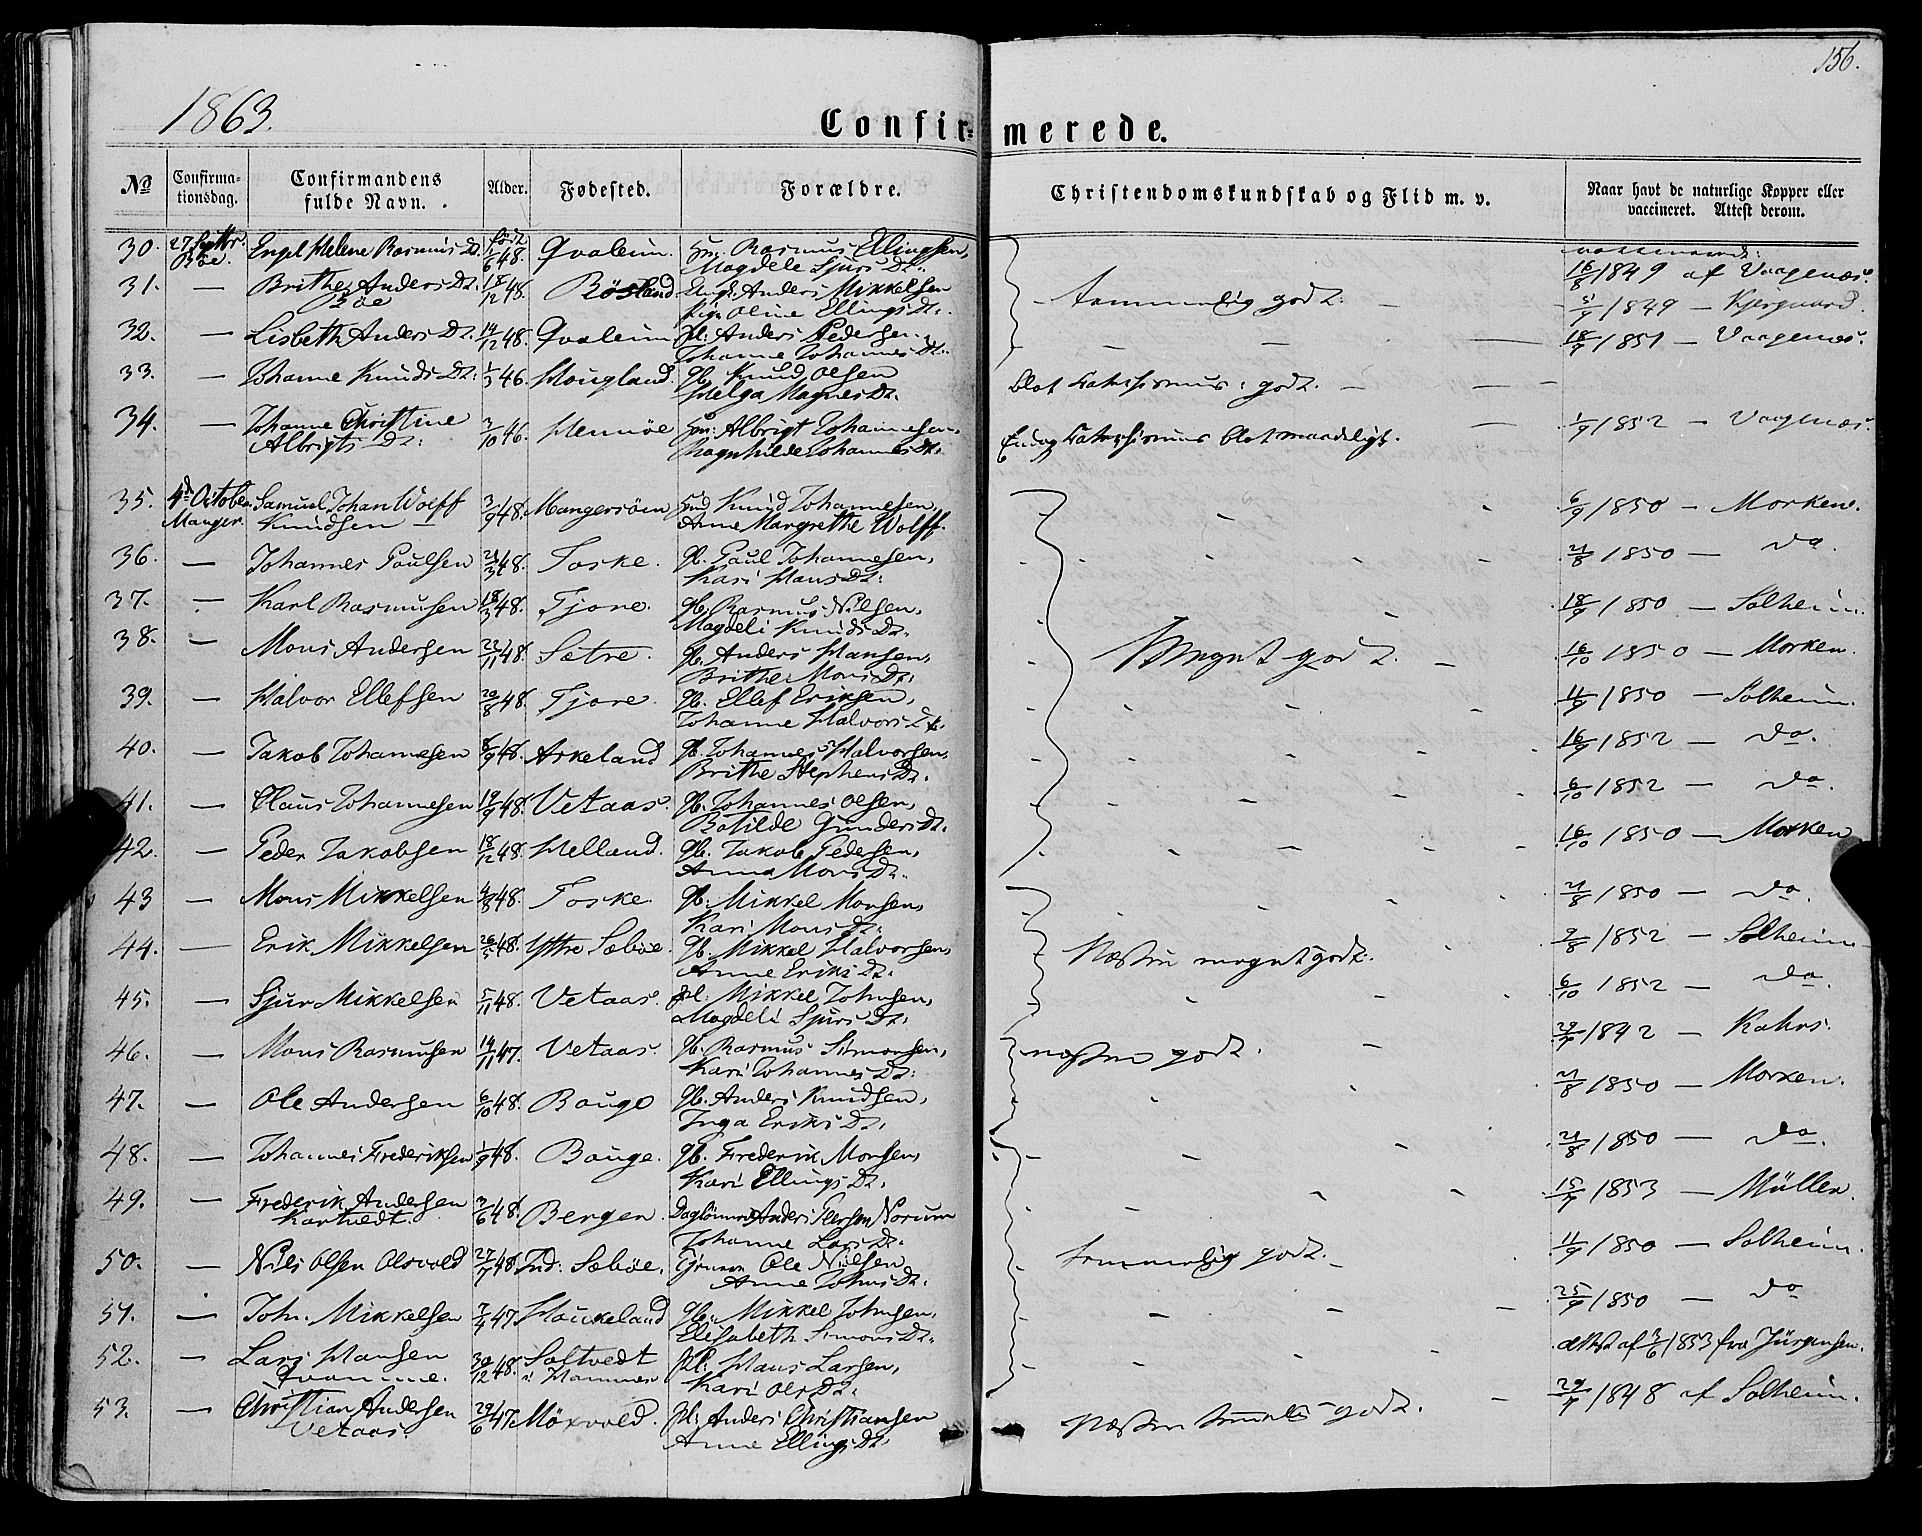 156.
1863.
Confirmerede.
No Confirmationsdag. Confirmandens fulde Navn. Alder. Fødested. Forældre. Christendomskundskab og Flid m. v. Naar havt de naturlige Kopper eller vaccineret. Attest derom.
30. 27 Septbr. Bøe. Engel Helene Rasmus Dt. født 1/6 48. Qvaleim Hm: Rasmus Ellingsen, Magdele Sjurs Dt. vaccineret: 16/8 1849 af Vaagenæs.
31. — Brithe Anders Dt. Bøe 18/12 48. Røsland Ungk: Anders Mikkelsen Pige Oline Ellings Dt. temmelig godt. 5/9 1849 — Kjergaard.
32. — Lisbeth Anders Dt. 14/12 48. Qvaleim Pl: Anders Pedersen Johanne Johannes Dt. — 18/9 1851 — Vaagenæs.
33. — Johanne Knuds Dt: 1/3 46. Hougland Gb. Knud Olsen Helga Magnes Dt. blot Katechismus: godt. —
34. — Johanne Christine Albrigts Dt: 7/10 46. Hennøe Hm: Albrigt Johannesen, Magnhilde Johannes Dt. Endog Katechismus blot maadeligt. 1/9 1852 — Vaagenæs.
35. 4d October Manger. Samuel Johan Wolff Knudsen 3/9 48. Mangersøen Hmd Knud Johannesen, Anne Margrethe Wolff. 6/9 1850 — Morken.
36. — Johannes Poulsen 23/3 48. Toske. Gb. Paul Johannesen, Kari Hans Dt: 21/8 1850 — do.
37. — Karl Rasmusen 18/3 48. Tjore. Gb: Rasmus Nilsen, Magdeli Knuds Dt. 18/9 1850 — Solheim.
38. — Mons Andersen 22/11 48. Sætre. Gb. Anders Hansen, Brithe Mons Dt. Meget godt. 16/10 1850 — Morken.
39. — Halvor Ellefsen 20/8 48. Tjore. Gb. Ellef Eriksen, Johanne Halvors Dt. 11/9 1850 — Solheim.
40. — Jakob Johannesen 8/9 48. Askeland Gb. Johannes Halvorsen, Brithe Stephens Dt. 16/9 1852 — do.
41. — Claus Johannesen 19/9 48. Vetaas. Gb. Johannes Olsen, Botilde Gunders Dt. 6/10 1852 — do
42. — Peder Jakobsen 18/12 48. Helland. Gb. Jakob Pedersen, Anna Mons Dt. 16/10 1850 — Morken
43 — Mons Mikkelsen 4/8 48. Toske. Gb. Mikkel Monsen, Kari Mons Dt. 21/8 1850 — do.
44. — Erik Mikkelsen 26/5 48. Yttre Sæbøe. Gb. Mikkel Halvorsen, Anne Eriks Dt. Næsten meget godt. 9/8 1852 — Solheim
45. — Sjur Mikkelsen 5/11 48. Vetaas. Pl: Mikkel Johnsen, Magdeli Sjurs Dt. 6/10 1852 — do.
46. — Mons Rasmusen 14/11 47. Vetaas. Gb. Rasmus Simonsen, Kari Johannes Dt: næsten godt. 1842 — Kahrs.
47. — Ole Andersen 6/10 48. Bouge Gb. Anders Knudsen, Inga Eriks Dt. 21/8 1850 — Morken.
48. — Johannes Frederiksen 1/9 48. Bouge. Gb. Frederik Monsen, Kari Ellings Dt. 21/8 1850 — do.
49. — Frederik Andersen Kartvedt. 3/6 48. Bergen. Daglønner Anders Norum Johanne Lars Dt. 15/9 1853 — Müller.
50. — Nils Olsen Olsvold 27/7 48. Ind: Sæbøe. Ole Nielsen Anne Johns Dt. temmelig godt. 11/9 1850 — Solheim.
51. — John Mikkelsen 7/4 47 Haukeland Gb. Mikkel Johnsen, Elisabeth Simons Dt. 25/9 1850 — do
52. — Lars Hansen Qvamme. 30/12 48. Saltvedt i Hammer Pl: Hans Larsen, Kari Ols Dt. attest af 3/6 1853 fra Jürgensen.
53. — Christian Andersen Vetaas. 29/6 47. Møxvold. Pl: Anders Christiansen Anne Ellings Dt. Næsten temmelig godt. 1848 af Solheim.